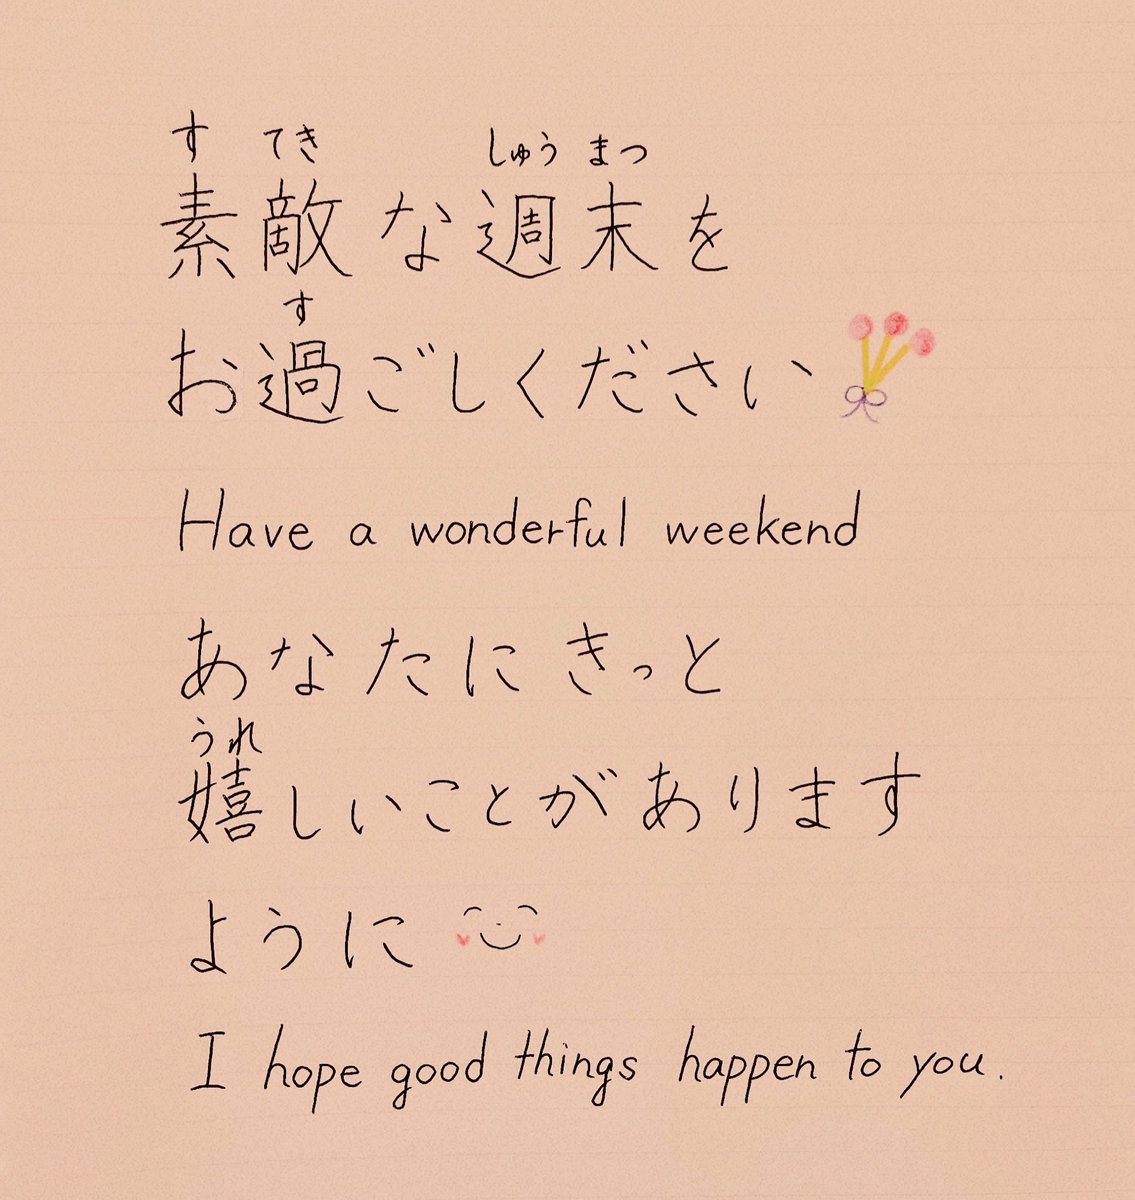 す てき しゅう まつ
素敵な週末を
す
お過ごしください
Have a wonderful weekend
あなたにきっと
うれ
嬉しいことがあります
ように
I hope good things happen to you.